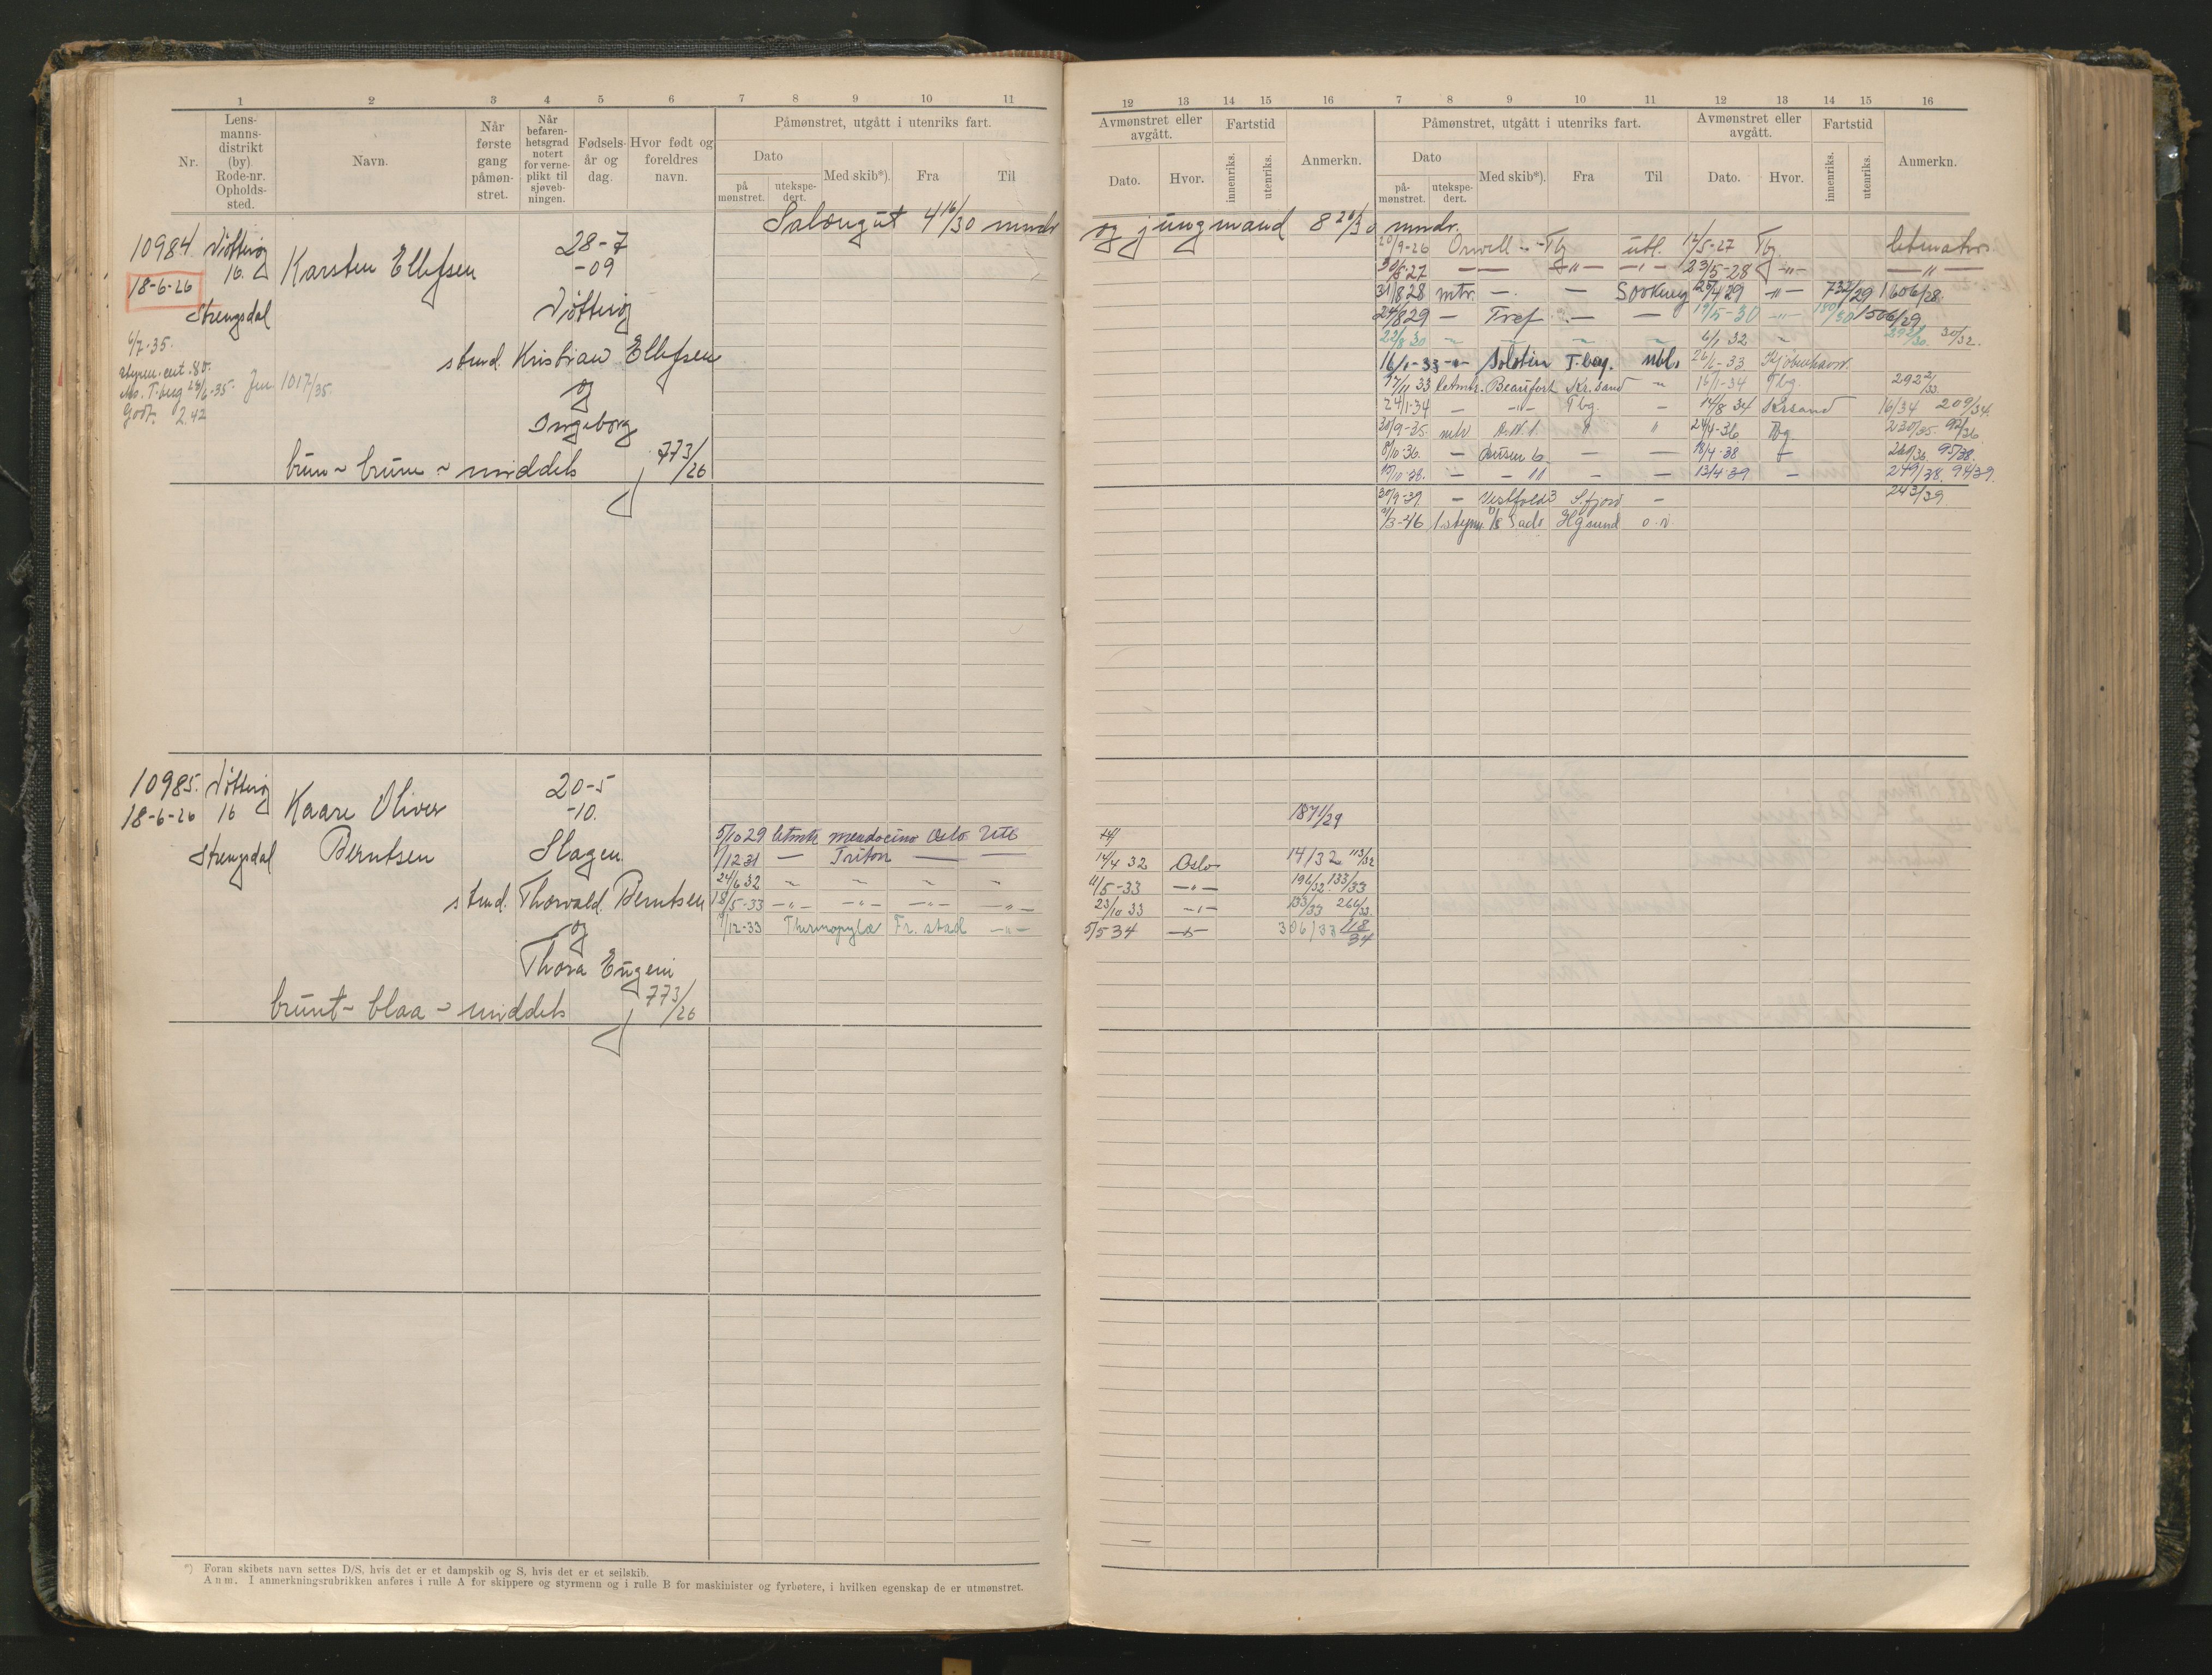 1 2 3 4 5 6 7 8 9 10 11
Nr.
Lens-
manns-
distrikt
(by).
Rode-nr.
Opholds-
sted.
Navn.
Når
første
gang
påmøn-
stret.
Når
befaren-
hetsgrad
notert
for verne-
plikt til
sjøveb-
ningen.
Fødsels-
år og
dag.
Hvor født og
foreldres
navn.
Påmønstret, utgått i utenriks fart.
Dato
på
mønstret.
utekspe-
dert.
Med skib*).
Fra
Til
Salongut 4 16/30 mndr
10984 Nøtterøy 28-7
16. Karsten Ellefsen -09
18-6-26
Strengsdal Nøtterøy
6/7-35.
stud. Kristian Ellefsen
T.berg 24/6-35. Jnr. 1017/35.
og
Godt. 2.42
Ingeborg
brun - brune - middels 773/26
10985. Nøtterøy 20-5
18-6-26 16 Kaare Oliver -10.
Strengsdal Berntsen Slagen
5/10 29 letmtr mendocino Oslo Utl
1/12 31 — Triton — —
24/6 32 " " " "
stud. Thorvald Berntsen 18/5-33 -"- -"- -"- -"-
og 9/12-33 Thermopylæ Fr.stad -"-
Thora Eugeni
brunt - blaa - middels 773/26
*) Foran skibets navn settes D/S, hvis det er et dampskib og S, hvis det er et seilskib.
Anm. I anmerkningsrubrikken anføres i rulle A for skippere og styrmenn og i rulle B for maskinister og fyrbøtere, i hvilken egenskap de er utmønstret.
12 13 14 15 16 7 8 9 10 11 12 13 14 15 16
Avmønstret eller
avgått.
Dato.
Hvor.
Fartstid
innenriks.
utenriks.
Anmerkn.
Påmønstret, utgått i utenriks fart.
Dato
på-
mønstret.
utekspe-
dert.
Med skib*).
Fra
Til
Avmønstret eller
avgått.
Dato.
Hvor.
Fartstid
innenriks.
utenriks.
Anmerkn.
og jungmand 8 26/30 mndr.
20/9-26 Orwell - Tbg utl. 12/5-27 Tbg. letmatros
30/5-27 — — -"- -"- 23/5-28 -"- — " —
31/8 28 mtr. — . — Sovkeng 25/4 29 -"- 732/29 1606/28.
24/8 29 — Tref — — 19/5-30 -"- 180/30 1506/29
22/8 30 " " " " 6/1 32 " 292/30. 30/32.
16/1-33 -"- Solstin T.berg. utl. 26/1-33 Kjøbenhavn.
17/11 33 letmtr. Beaufort Kr.sand " 16/1-34 Tbg. 292/33.
24/1-34 — -"- Tbg. — 14/8 34 Krsand 16/34 209/34.
30/9-35. mtr " " 24/4-36 Tbg. 230/35. 92/36
8/10-36. — Busen 6 — — 18/4-38 — 260/36. 95/38.
15/10-38. — - 11 — — 13/4-39 — 249/38. 94/39.
30/9-39 — Vestfold 3 S.fjord — 243/39
1/3-46 1.styrm. D/S Hgsund o.v.
1871/29
14/
14/4 32 Oslo 14/32 113/32
11/5-33 -"- 196/32. 133/33
23/10 33 -"- 133/33 266/33.
5/5 34 -"- 306/33 118/34